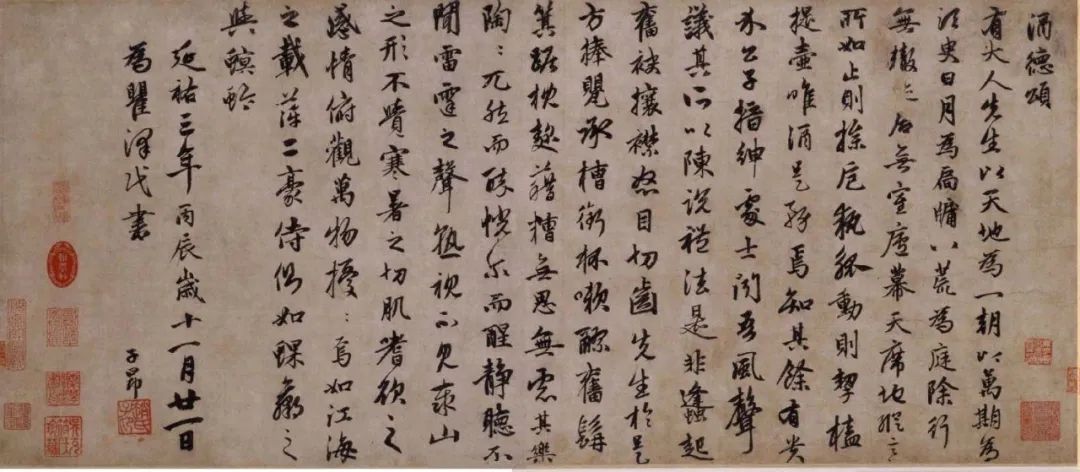 酒德頌
有大人先生以天地為一朝以萬期為
須臾日月為扃牖八荒為庭除行
無轍迹居無室廬幕天席地縱意
所如止則操巵執觚動則挈榼
提壺唯酒是務焉知其餘有貴
介公子搢紳處士聞吾風聲
議其所以陳説禮法是非蠭起
奮袂攘襟怒目切齒先生於是
方捧甖承槽銜杯漱醪奮髯
箕踞枕麴藉糟無思無慮其樂
陶〻兀然而醉恍尓而醒靜聽不
聞雷霆之聲孰視不見泰山
之形不覺寒暑之切肌嗜欲之
感情俯觀萬物擾〻焉如江海
之載萍二豪侍側如蜾蠃之
與螟蛉
延祐三年丙辰歲十一月廿一日
為瞿澤民書
子昂